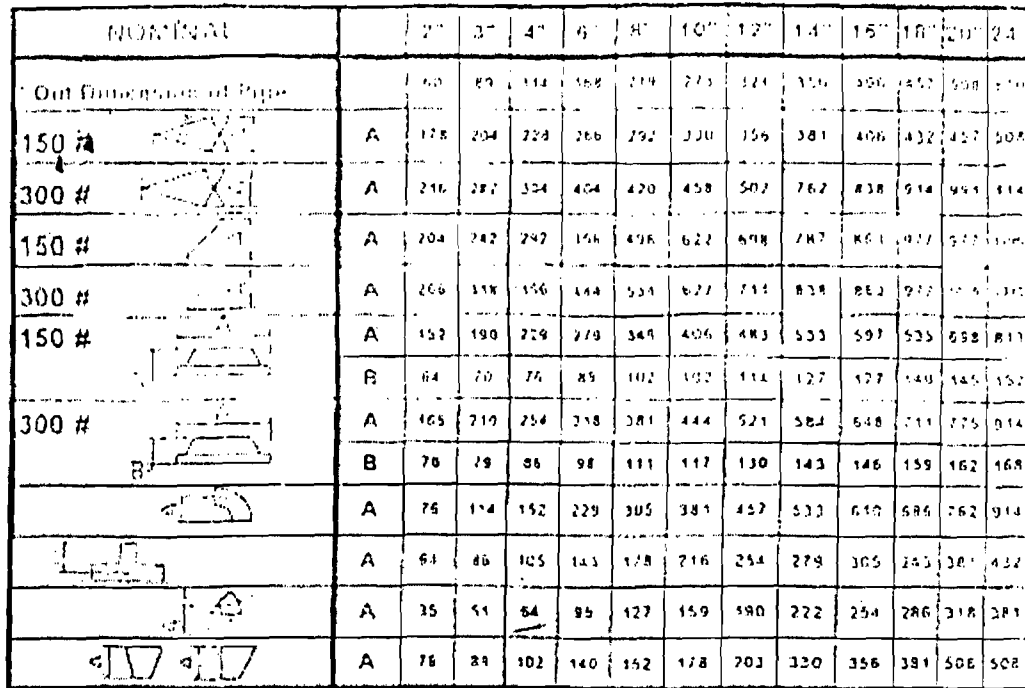 NOMINAL 2" 3" 4" 6" 8" 10" 12" 14" 16" 18" 20" 24
Out Dimension of Pipe 60 89 114 168 219 273 323 356 406 457 508
150 # A 178 204 228 266 292 330 356 381 406 432 457 508
300 # A 216 282 304 404 420 458 502 762 838 914 991
150 # A 204 242 292 356 622 698 787
300 # A 266 318 356 444 622 711 838
150 # A 152 190 229 279 406 483 533 597 698 813
B 64 70 76 89 102 102 114 127 127 140 145 152
300 # A 165 210 254 318 381 444 521 584 648 711 775 914
B B 70 79 86 98 111 117 130 143 146 159 162 168
A 76 114 152 229 305 381 457 533 610 686 762 914
A 64 86 105 143 178 216 254 279 305 343 381 432
A 35 51 64 95 127 159 190 222 254 286 318 381
A A A 76 89 102 140 152 178 203 330 356 381 508 508